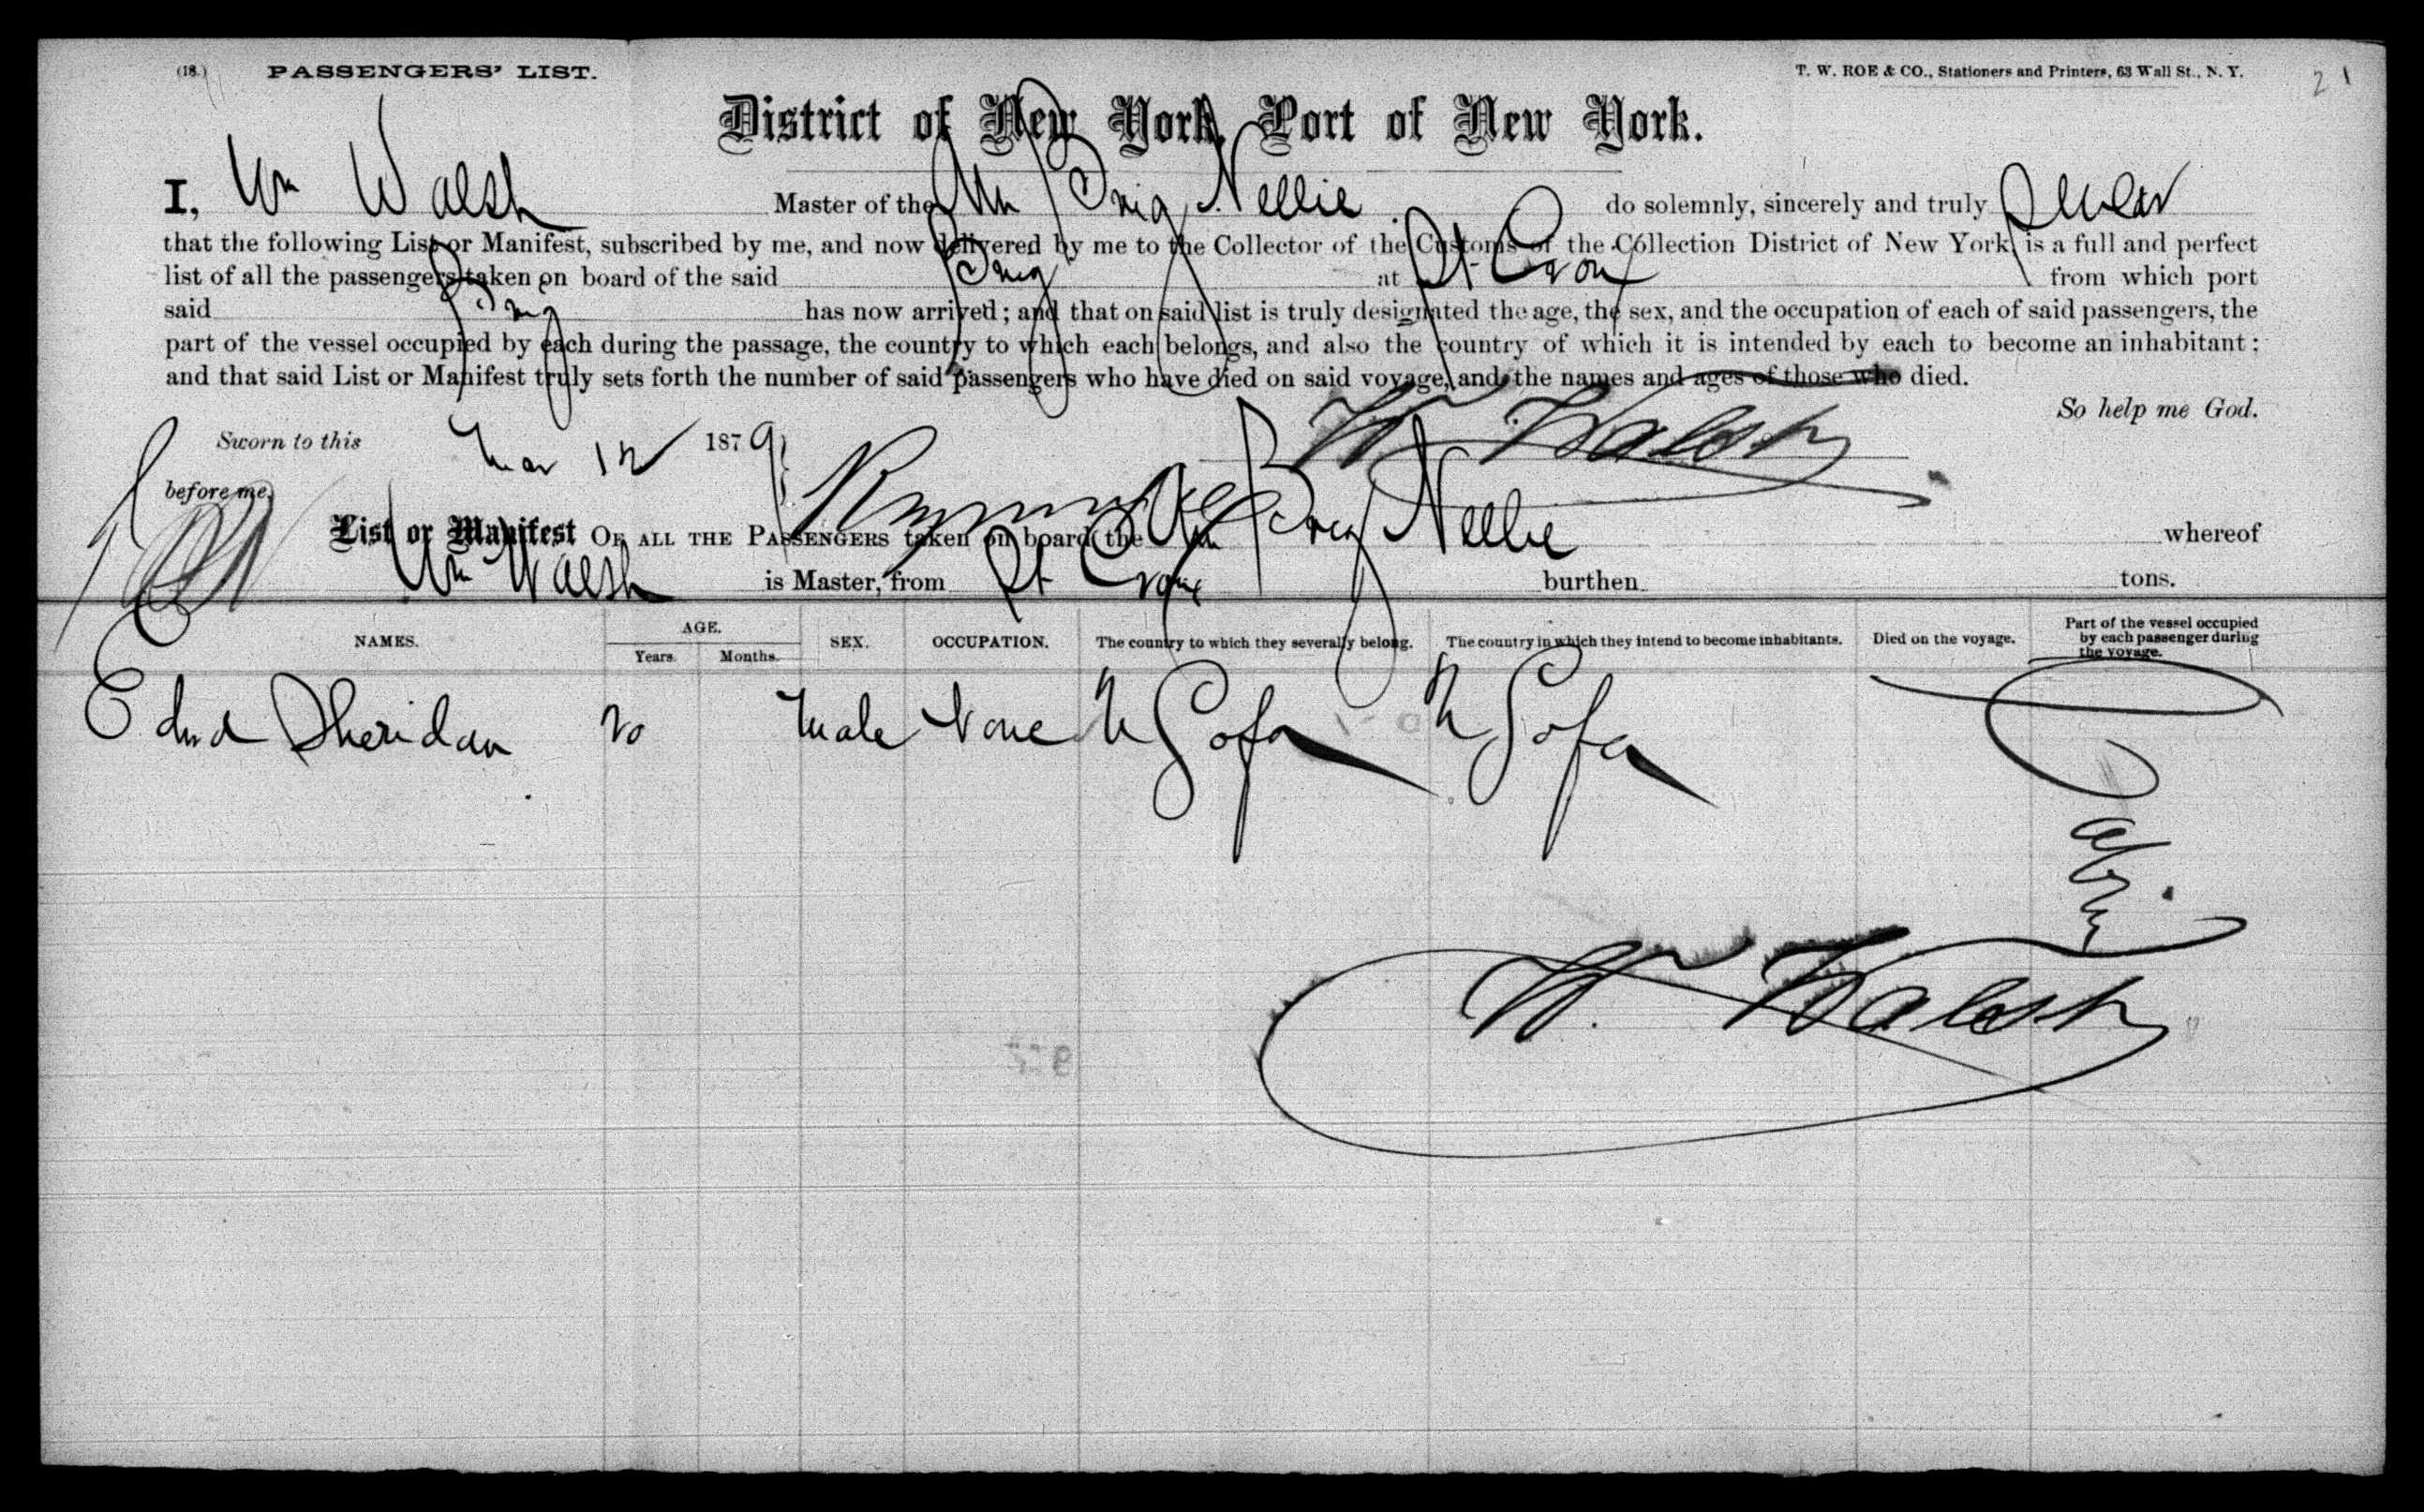 (18.) PASSENGERS' LIST.
T. W. ROE & CO., Stationers and Printers, 63 Wall St., N. Y.
21
District of New York, Port of New York.
I, Wm Walsh Master of the Am Brig Nellie do solemnly, sincerely and truly Swear
that the following List or Manifest, subscribed by me, and now delivered by me to the Collector of the Customs of the Collection District of New York, is a full and perfect
list of all the passengers taken on board of the said Brig at St Croix from which port
said Brig has now arrived; and that on said list is truly designated the age, the sex, and the occupation of each of said passengers, the
part of the vessel occupied by each during the passage, the country to which each belongs, and also the country of which it is intended by each to become an inhabitant;
and that said List or Manifest truly sets forth the number of said passengers who have died on said voyage, and the names and ages of those who died.
So help me God.
Sworn to this Mar 12 1879
Wm Walsh
before me,
List or Manifest OF ALL THE PASSENGERS taken on board the Am Brig Nellie whereof
Wm Walsh is Master, from St Croix burthen tons.
NAMES.
AGE.
Years.
Months.
SEX.
OCCUPATION.
The country to which they severally belong.
The country in which they intend to become inhabitants.
Died on the voyage.
Part of the vessel occupied
by each passenger during
the voyage.
Edwd Sheridan 20 Male None U S of a U S of a
Cabin
Wm Walsh